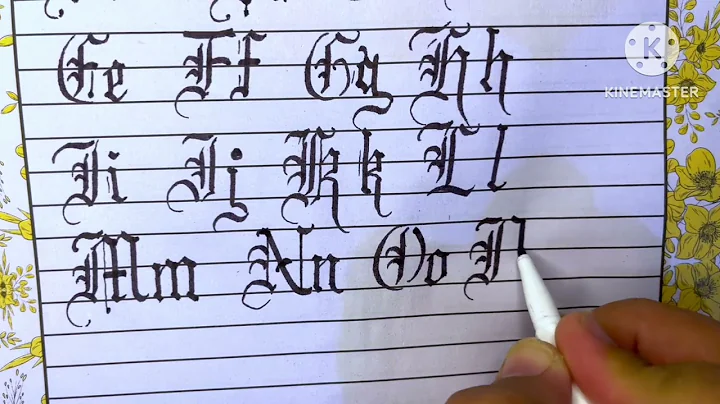 Ee Ff Gg Hh
Ii Jj Kk Ll
Mm Nn Oo P
K
KINEMASTER